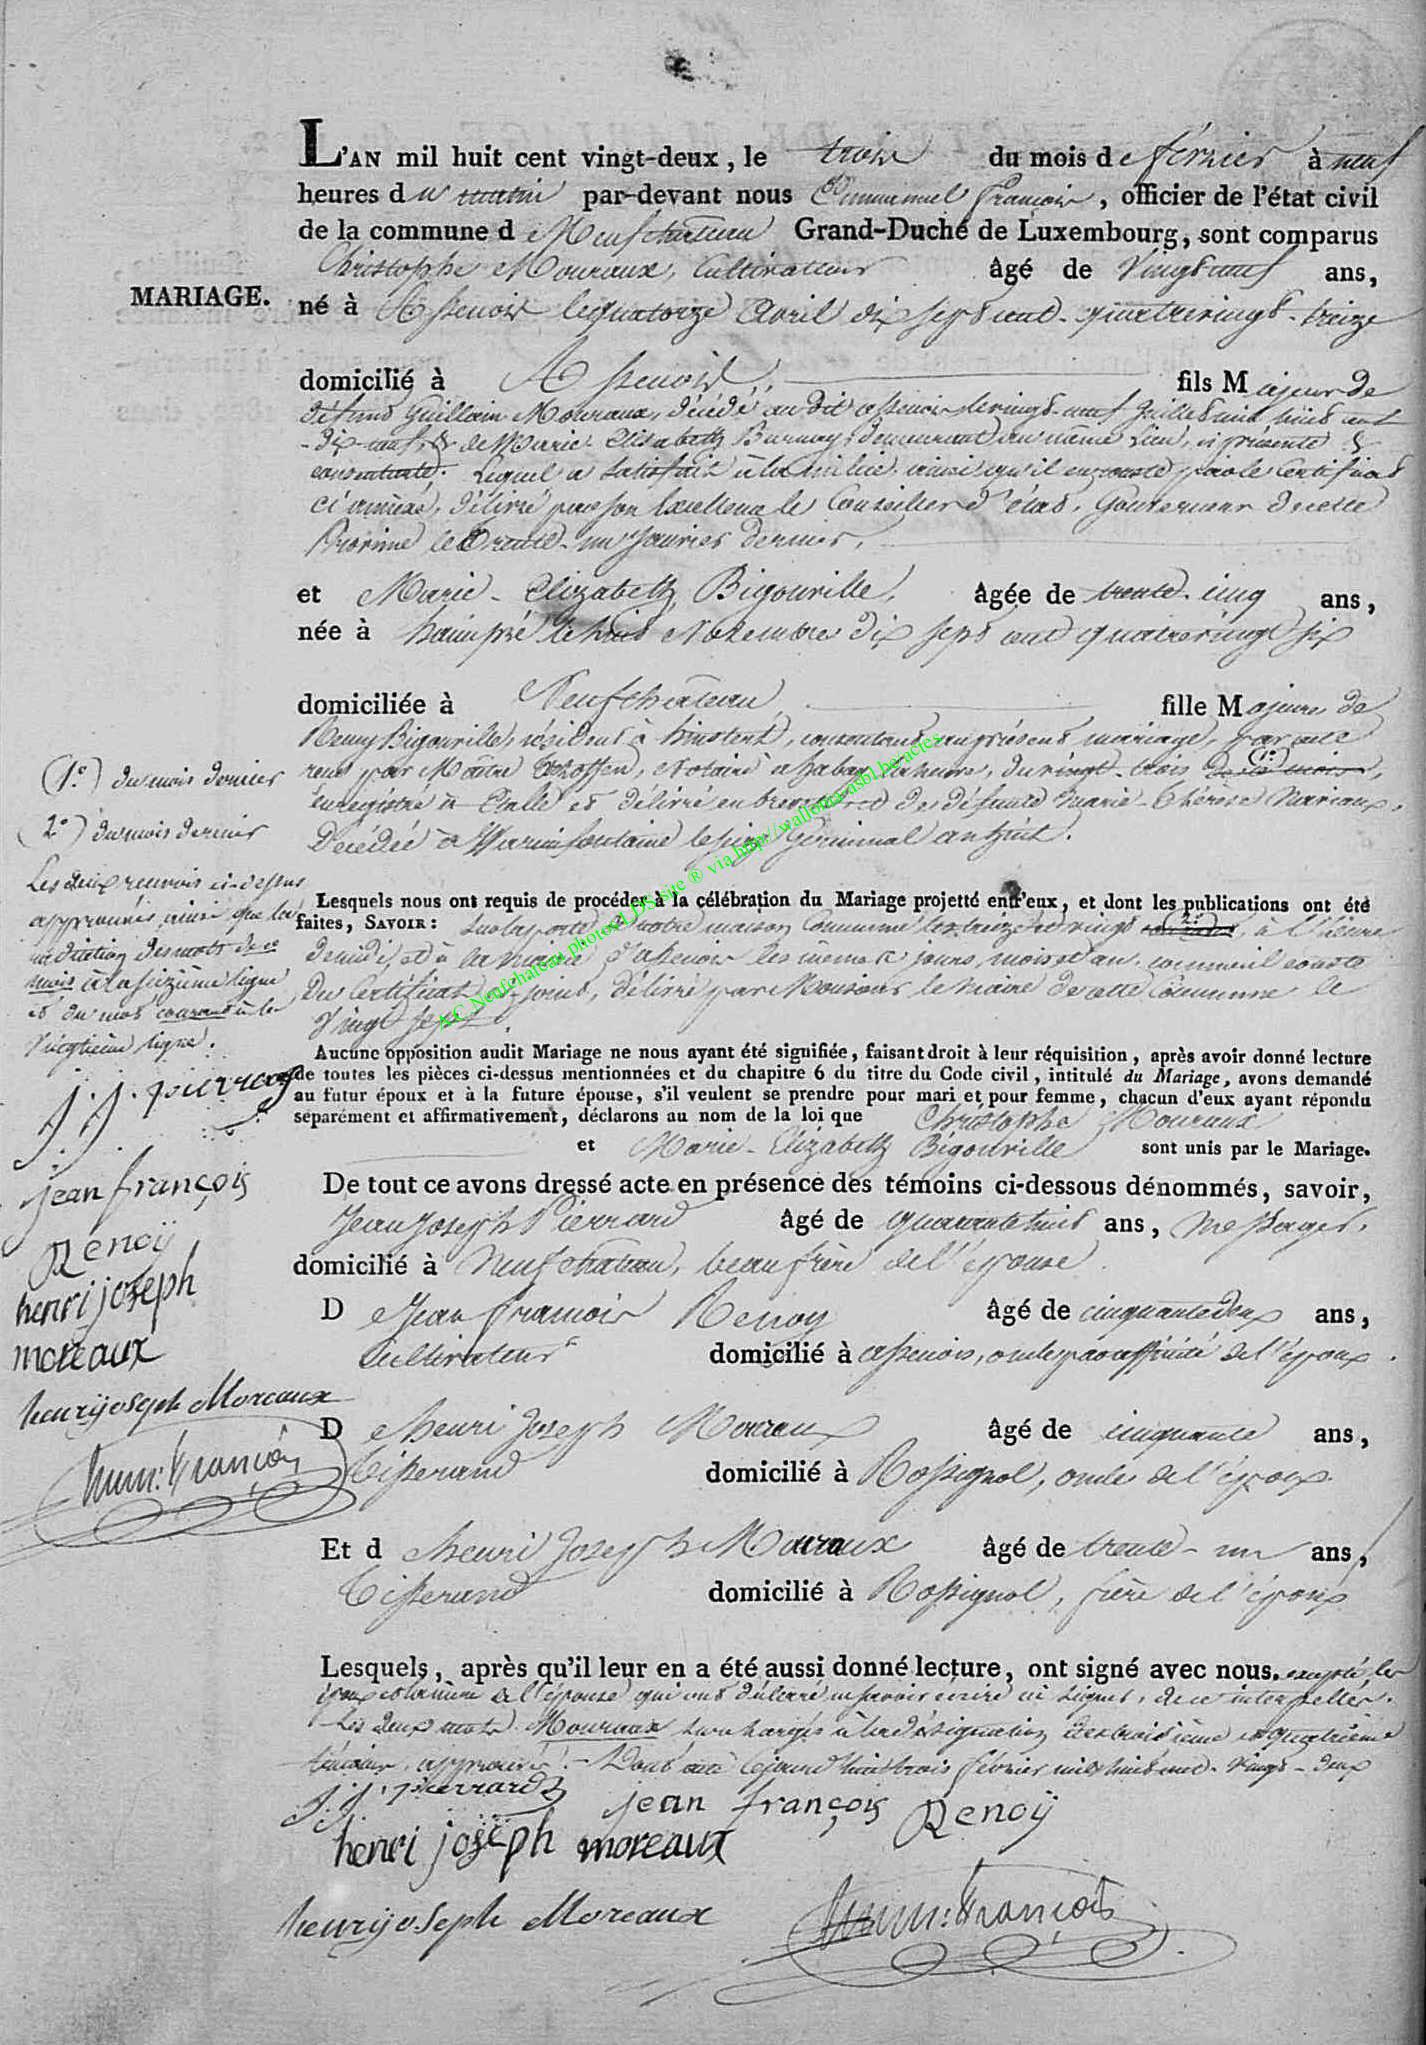 L'AN mil huit cent vingt-deux, le trois du mois de février à neuf
heures du matin par-devant nous Emmanuel François, officier de l'état civil
de la commune de Neufchateau Grand-Duché de Luxembourg, sont comparus
Christophe Mouraux, Cultivateur âgé de Vingt neuf ans,
MARIAGE.
né à Assenois le quatorze Avril dix sept cent quatrevingt-treize
domicilié à Assenois, fils Majeur de
défunt Guillain Mouraux, décédé au dit assenois le vingt-neuf juillet mil huit cent
-dix-neuf, & de Marie Elisabeth Burnay, demeurant au même Lieu, ci présente &
consentante. Lequel a satisfait à la milice, ainsi qu'il en conste par le Certificat
ci annéxé, délivré par son Excellence le Conseiller d'état, Gouverneur de cette
Province le trente-un Janvier dernier.
et Marie-Elizabeth Bigouville, âgée de trente-cinq ans,
née à haimpré le huit Novembre dix sept cent quatrevingt six
domiciliée à Neufchâteau, fille Majeure de
Remy Bigouville, résident à, consentant au présent mariage, par acte
reçu par Maître, Notaire a habay la neuve, du vingt-trois de ce mois, (1°.)
enregistré à Etalle et délivré en brevet et de défunte Marie-Thérèse Mariaux,
Décédée à Warmifontaine le germinal an huit.
(1°.) du mois dernier
(2°) du mois dernier
Les deux renvois ci-dessus
approuvés, ainsi que la
radiation des mots de ce
mois à la seizième ligne
et du mot courant à la
Vingtième ligne.
Lesquels nous ont requis de procéder à la célébration du Mariage projetté entr'eux, et dont les publications ont été
faites, SAVOIR : sur la porte de notre maison Commune les treize et vingt courant (2°.), à l'heure
de midi, et à la mairie d'assenois les mêmes jours, mois et an, comme il conste
du Certificat ci-joint, délivré par Monsieur le Maire de cette Commune le
Vingt sept.
A.C. Neufchateau photos LDS site ® via http://wallonia.asbl.be/actes
Aucune opposition audit Mariage ne nous ayant été signifiée, faisant droit à leur réquisition, après avoir donné lecture
de toutes les pièces ci-dessus mentionnées et du chapitre 6 du titre du Code civil, intitulé du Mariage, avons demandé
au futur époux et à la future épouse, s'il veulent se prendre pour mari et pour femme, chacun d'eux ayant répondu
séparément et affirmativement, déclarons au nom de la loi que Christophe Mouraux
et Marie-Elizabeth Bigouville sont unis par le Mariage.
j. j. pierrard
jean françois
Renoÿ
henri joseph
moreaux
henryjoseph Moreaux
Emm: François
De tout ce avons dressé acte en présence des témoins ci-dessous dénommés, savoir,
Jean Joseph Pierrard âgé de quarante huit ans, messager,
domicilié à Neufchateau, beau frère de l'épouse.
De Jean françois Renoy âgé de cinquante deux ans,
Cultivateur domicilié à assenois, oncle par affinité de l'époux.
De henri Joseph Moureaux âgé de cinquante ans,
Tisserand domicilié à Rossignol, oncle de l'époux.
Et de henri Joseph Mouraux âgé de trente-un ans,
Tisserand domicilié à Rossignol, frère de l'époux
Lesquels, après qu'il leur en a été aussi donné lecture, ont signé avec nous, excepté les
époux et la mère de l'épouse qui ont déclaré ne savoir écrire ni signer, de ce interpellés.
Les deux mots Mouraux surchargés à la désignation des troisième et quatrième
témoins, approuvé. - Dont acte Cejourd'hui trois février mil huit cent-vingt-deux
j. j. pierrard jean françois Renoÿ
henri joseph moreaux
henryjoseph Moreaux Emm: François